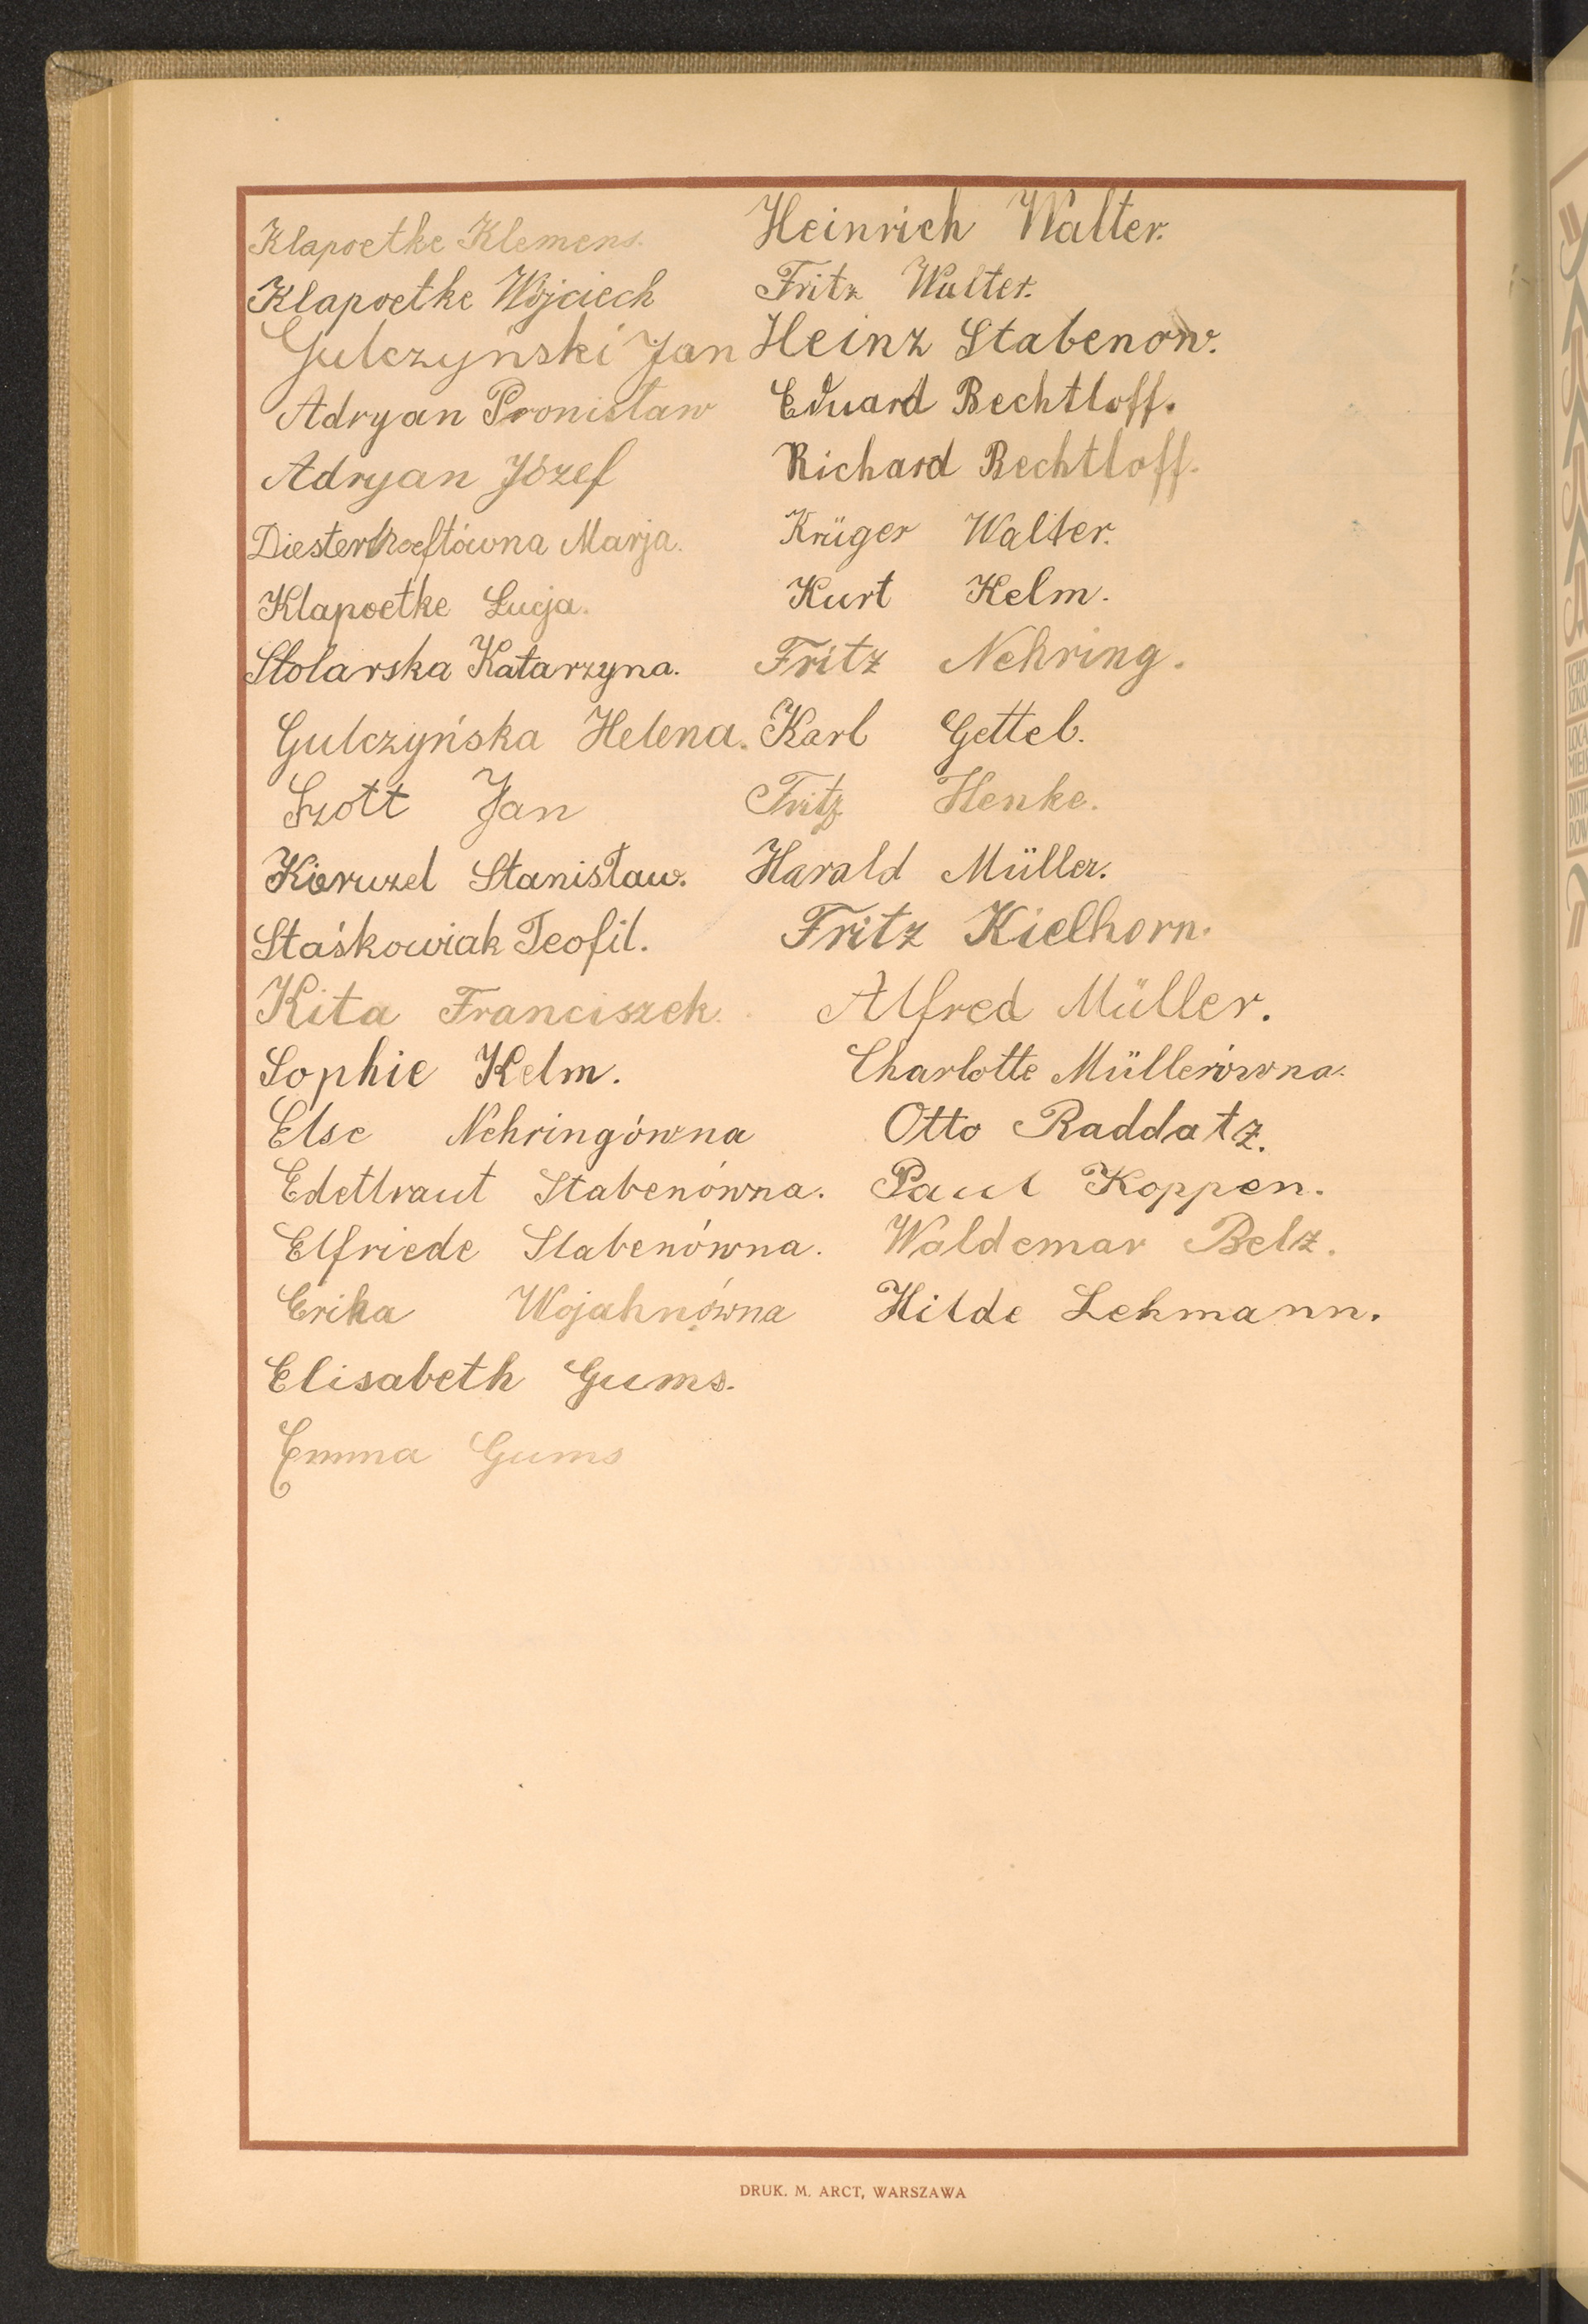 Klapoetke Klemens.
Klapoetke Wojciech
Gulczyński Jan
Adryan Bronisław
Adryan Józef
Diesterhoeftówna Marja.
Klapoetke Łucja.
Stolarska Katarzyna.
Gulczyńska Helena.
Szott Jan
Kieruzel Stanisław.
Staśkowiak Teofil.
Kita Franciszek.
Sophie Kelm.
Else Nehringówna
Edeltraut Stabenówna.
Elfriede Stabenówna.
Erika Wojahnówna
Elisabeth Gums.
Emma Gums
Heinrich Walter.
Fritz Walter.
Heinz Stabenow.
Eduard Bechtloff.
Richard Bechtloff.
Krüger Walter.
Kurt Kelm.
Fritz Nehring.
Karl Gettel.
Fritz Henke.
Harald Müller.
Fritz Kielhorn.
Alfred Müller.
Charlotte Müllerówna.
Otto Raddatz.
Paul Koppen.
Waldemar Belz.
Hilde Lehmann.
DRUK. M. ARCT, WARSZAWA